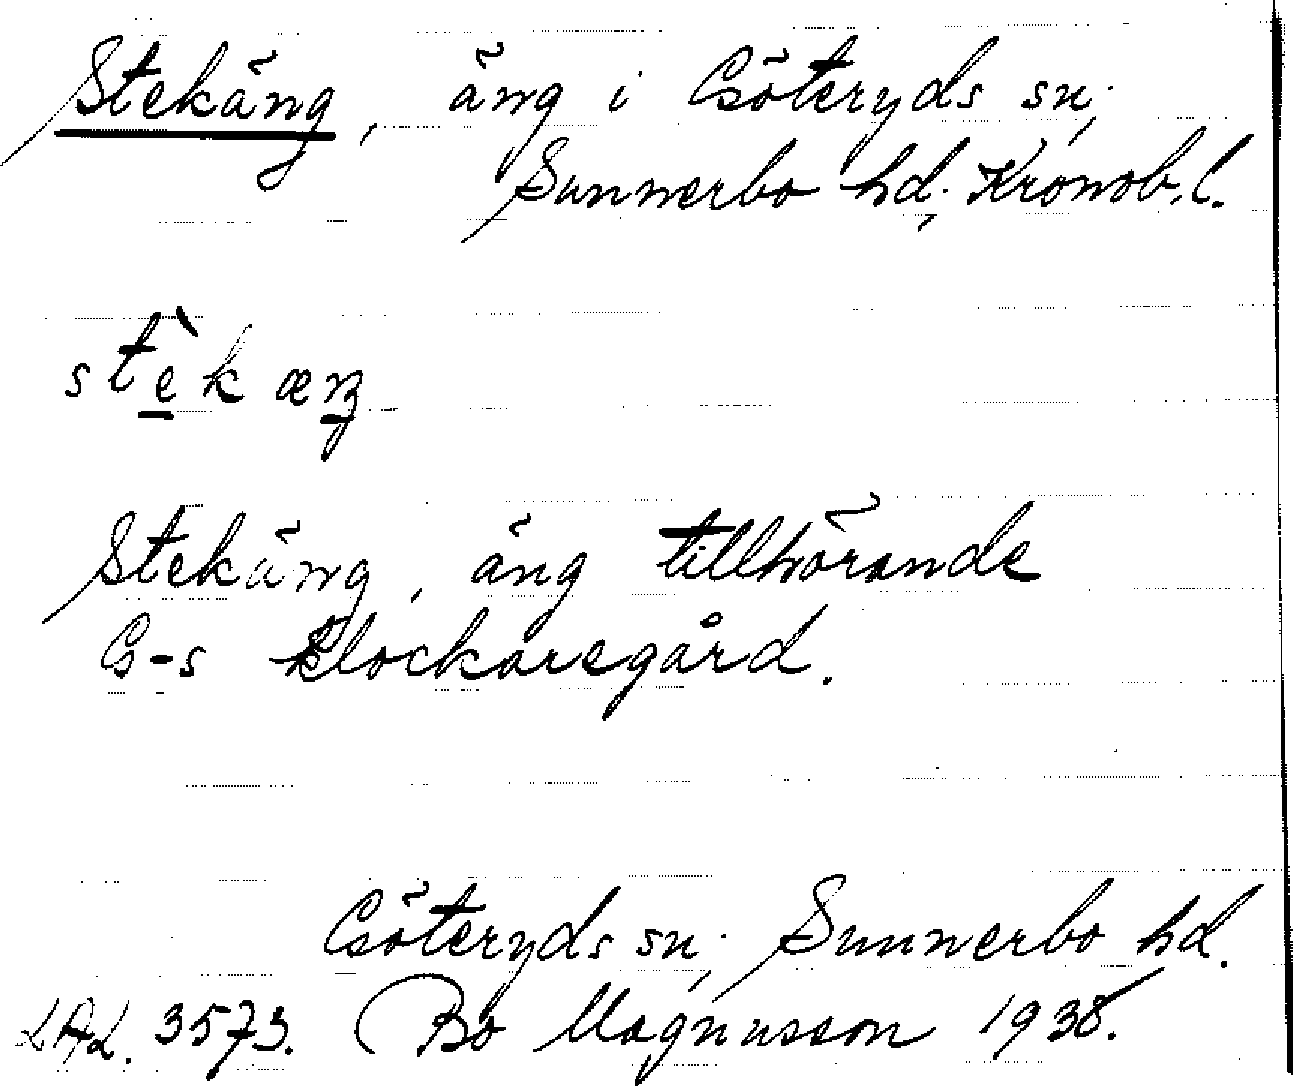 Stekäng, äng i Göteryds sn,
Sunnerbo hd, Kronob. l.
stèkæŋ
Stekäng, äng tillhörande
G-s klockaregård.
Göteryds sn, Sunnerbo hd.
LAL. 3573. Bo Magnusson 1938.